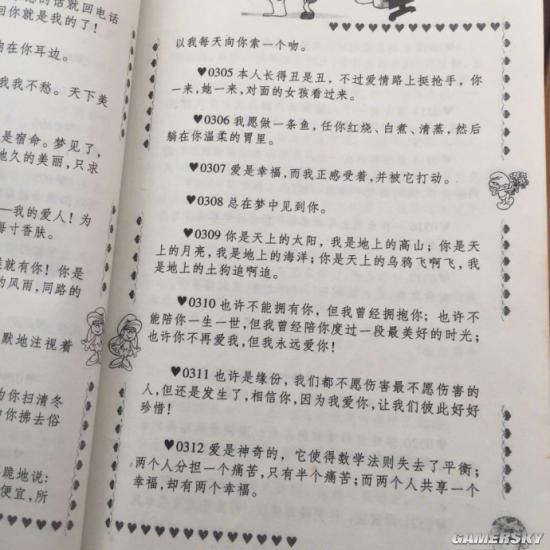 的话就回电话
回你就是我的了！
在你耳边。
我我不愁。天下美
是宿命。梦见了，
地久的美丽，只求
—我的爱人！为
每寸香肤。
就有你！你是
的风雨，同路的
默地注视着
为你扫清冬
为你拂去俗
跪地说：
便宜，所
以我每天向你索一个吻。
♥0305 本人长得丑是丑，不过爱情路上挺抢手，你
一来，她一来，对面的女孩看过来。
♥0306 我愿做一条鱼，任你红烧、白煮、清蒸，然后
躺在你温柔的胃里。
♥0307 爱是幸福，而我正感受着，并被它打动。
♥0308 总在梦中见到你。
♥0309 你是天上的太阳，我是地上的高山；你是天
上的月亮，我是地上的海洋；你是天上的乌鸦飞啊飞，我
是地上的狗追啊追。
♥0310 也许不能拥有你，但我曾经拥抱你；也许不
能陪你一生一世，但我曾经陪你度过一段最美好的时光；
也许你不再爱我，但我永远爱你！
♥0311 也许是缘份，我们都不愿伤害最不愿伤害的
人，但还是发生了，相信你，因为我爱你，让我们彼此好好
珍惜！
♥0312 爱是神奇的，它使得数学法则失去了平衡；
两个人分担一个痛苦，只有半个痛苦；而两个人共享一个
幸福，却有两个幸福。
GAMERSKY